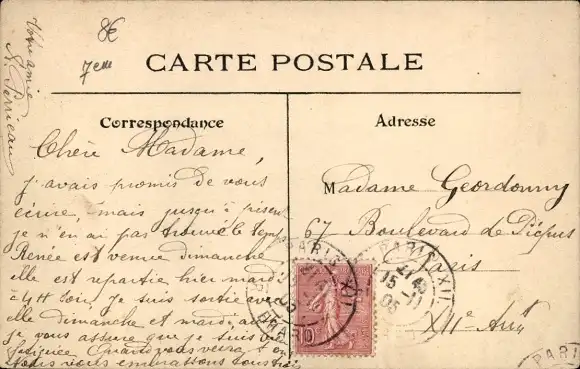 Votre amie
A. Perrieau
8€
7em
CARTE POSTALE
Correspondance
Adresse
Chère Madame,
J'avais promis de vous
écrire, mais jusqu'à présent
je n'en ai pas trouvé le temps
Renée est venue dimanche
elle est repartie hier mardi
à 4H Soir, je suis sortie avec
elle dimanche et mardi, aussi
je vous assure que je suis
fatiguée Quand vous verra t on
Nous vous embrassons tous
Madame Geordonny
67 Boulevard de Picpus
Paris
XIIe Arrt
PARIS XII
PARIS XII
15 -11
05
10
PARIS